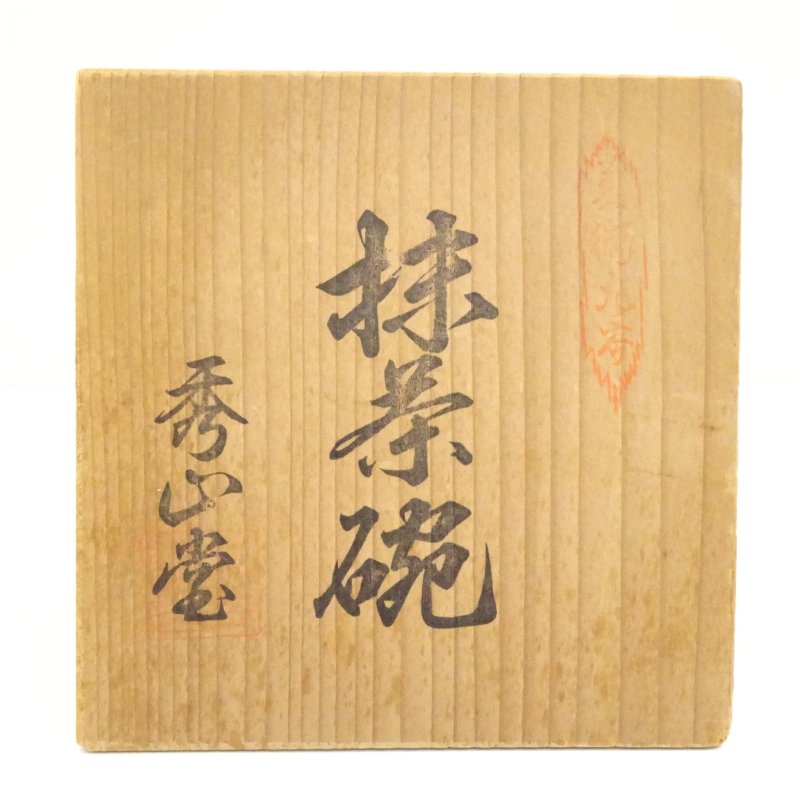 抹茶碗
秀山堂